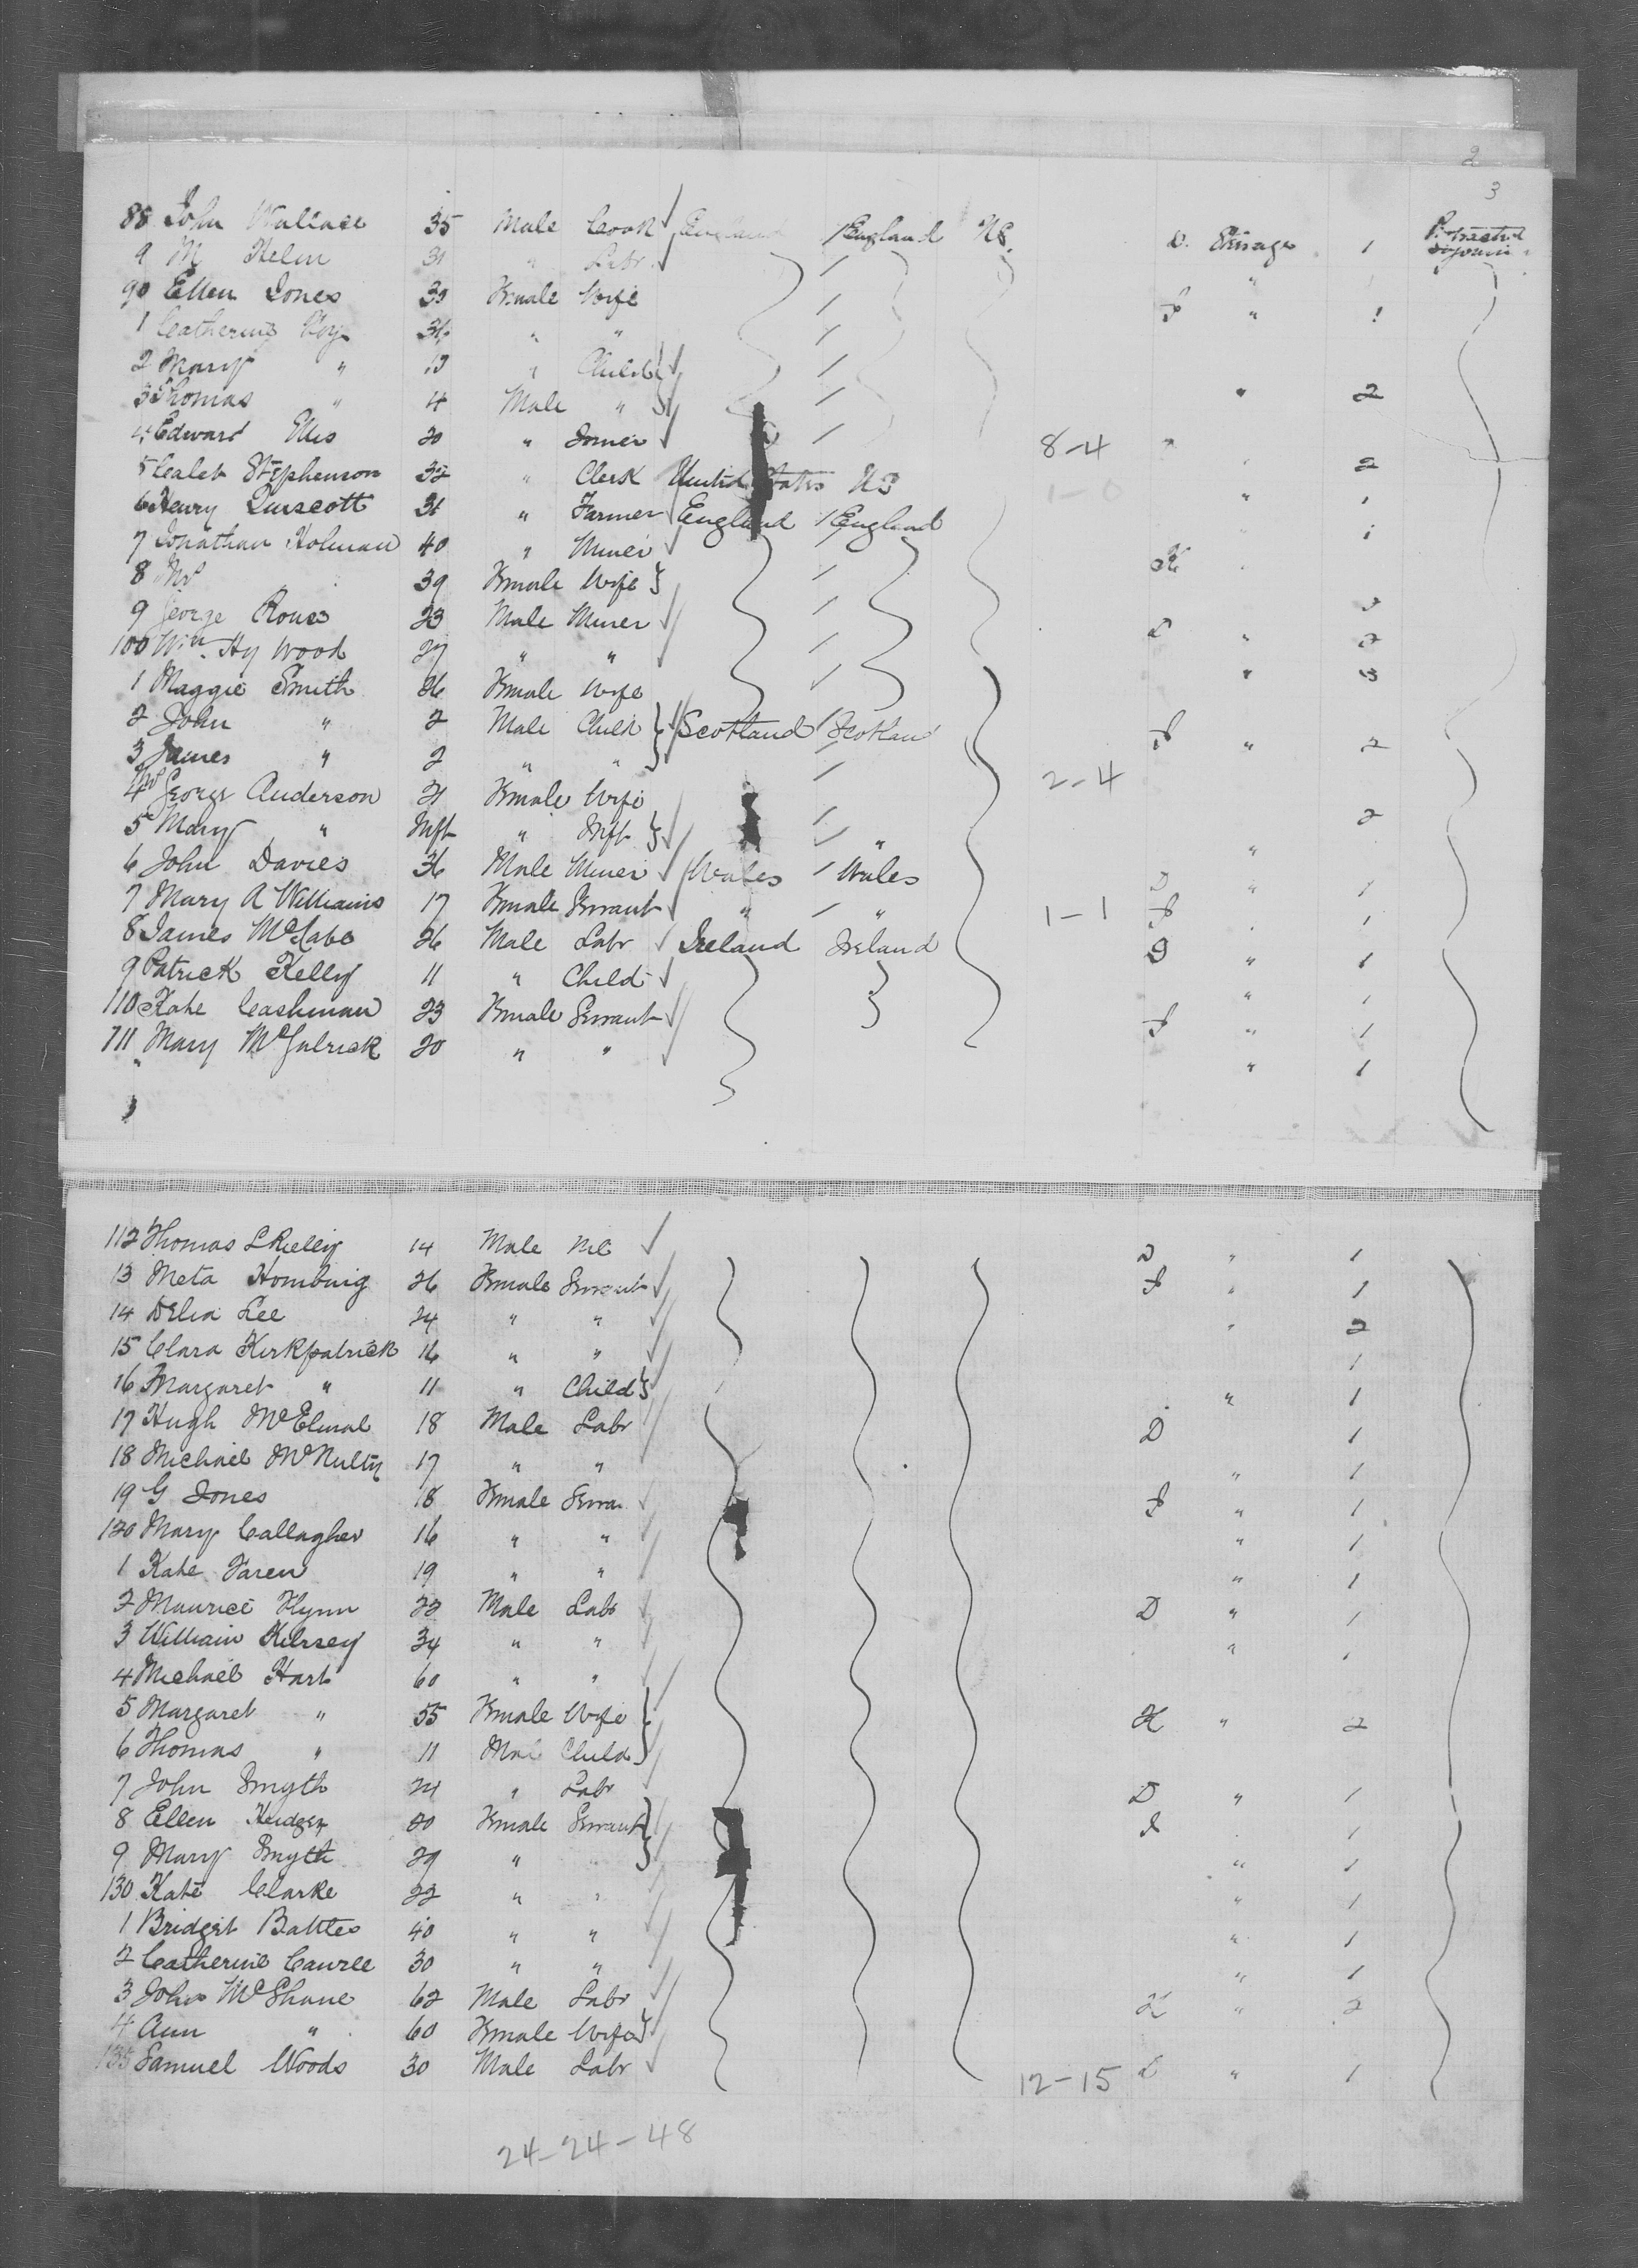 2
3
88 John Wallace 35 Male Cook England / England US. D. Steerage 1 Protracted Sojourn
9 M Helm 31 " Labr /
90 Ellen Jones 30 Female Wife / F " 1
1 Catherine 36 " " /
2 Mary " 13 " Child /
3 Thomas " 4 Male " / " 2
4 Edward Ellis 20 " Joiner / 8-4
5 Calet Stephenson 32 " Clerk United States US 1-0 2
6 Henry 31 " Farmer England / England " 1
7 Jonathan Holman 40 " Miner / 1
8 Mrs 39 Female Wife /
9 George Rouse 23 Male Miner /
100 Wm. Hy Wood 27 " " / " 2
1 Maggie Smith 26 Female Wife " 3
2 John " 2 Male Child Scotland / Scotland
3 James " 2 " " / F " 2
4 Mrs George Anderson 21 Female Wife / 2-4
5 Mary " Inft " Inft " 2
6 John Davies 36 Male Miner Wales / Wales D " 1
7 Mary A Williams 17 Female Servant " / " 1-1 F 1
8 James McCabe 26 Male Labr Ireland Ireland D " 1
9 Patrick Kelly 11 " Child " 1
110 Kate Cashman 23 Female Servant F " 1
111 Mary 20 " " " 1
112 Thomas 14 Male Nil D " 1
13 Meta Homburg 26 Female Servant F " 1
14 Delia Lee 24 " " " 2
15 Clara Kirkpatrick 16 " " 1
16 Margaret " 11 " Child " 1
17 Hugh 18 Male Labr D 1
18 Michael McNulty 17 " " " 1
19 G Jones 18 Female Serva F " 1
120 Mary Callagher 16 " " " 1
1 Kate Faren 19 " " " 1
2 Maurice Flynn 22 Male Labr D " 1
3 William Kelrsey 34 " " " 1
4 Michael Hart 60 " "
5 Margaret " 55 Female Wife " 2
6 Thomas " 11 Male Child
7 John Smyth 24 " Labr D " 1
8 Ellen 20 Female Servant F 1
9 Mary Smyth 29 " " 1
130 Kate Clarke 22 " " " 1
1 Bridget Battles 40 " " " 1
2 Catherine 30 " " " 1
3 John McShane 62 Male Labr " 2
4 Ann " 60 Female Wife
135 Samuel Woods 30 Male Labr 12-15 D " 1
24-24-48